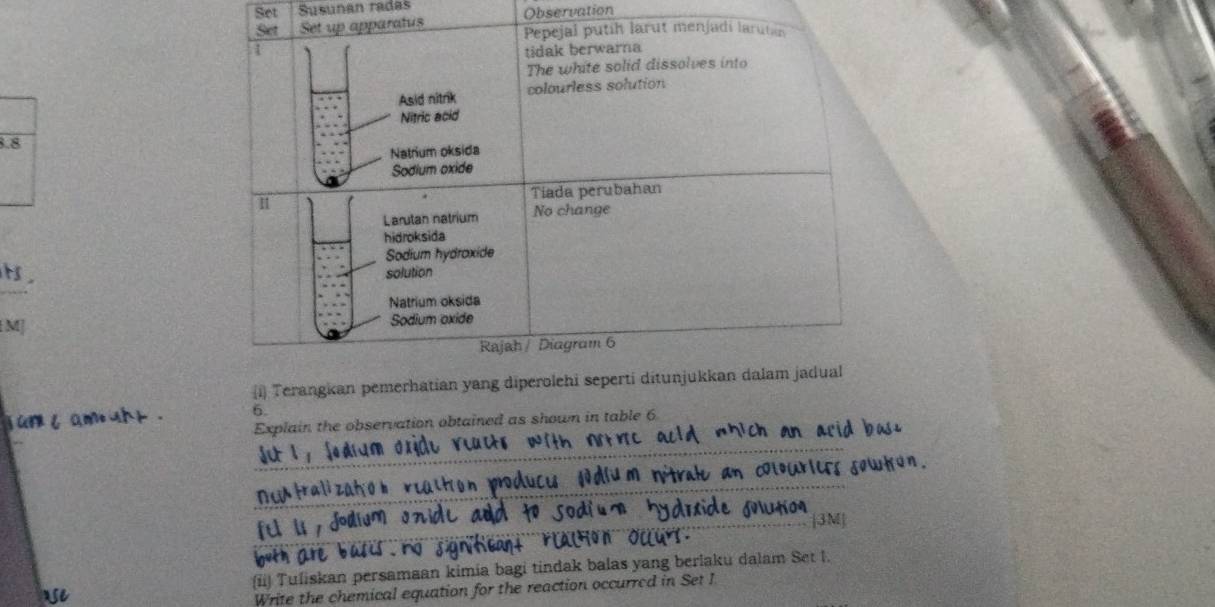 Set Susunan radas
Set Set up apparatus
Observation
I
Pepejal putih larut menjadi larutan
tidak berwarna
The white solid dissolves into
colourless solution
Asid nitrik
Nitric acid
Natrium oksida
Sodium oxide
8.8
II
Tiada perubahan
No change
Larutan natrium
hidroksida
Sodium hydroxide
solution
Natrium oksida
Sodium oxide
M]
Rajah / Diagram 6
(i) Terangkan pemerhatian yang diperolehi seperti ditunjukkan dalam jadual
6.
Explain the observation obtained as shown in table 6.
same amount.
Set 1, sodium oxide reacts with nitric acid which an acid base
neutralization reaction produces sodium nitrate an colourless solution.
set II, sodium oxide add to sodium hydroxide solution
[3M]
both are bases. no significant reaction occurs.
(ii) Tuliskan persamaan kimia bagi tindak balas yang berlaku dalam Set I.
Write the chemical equation for the reaction occurred in Set I.